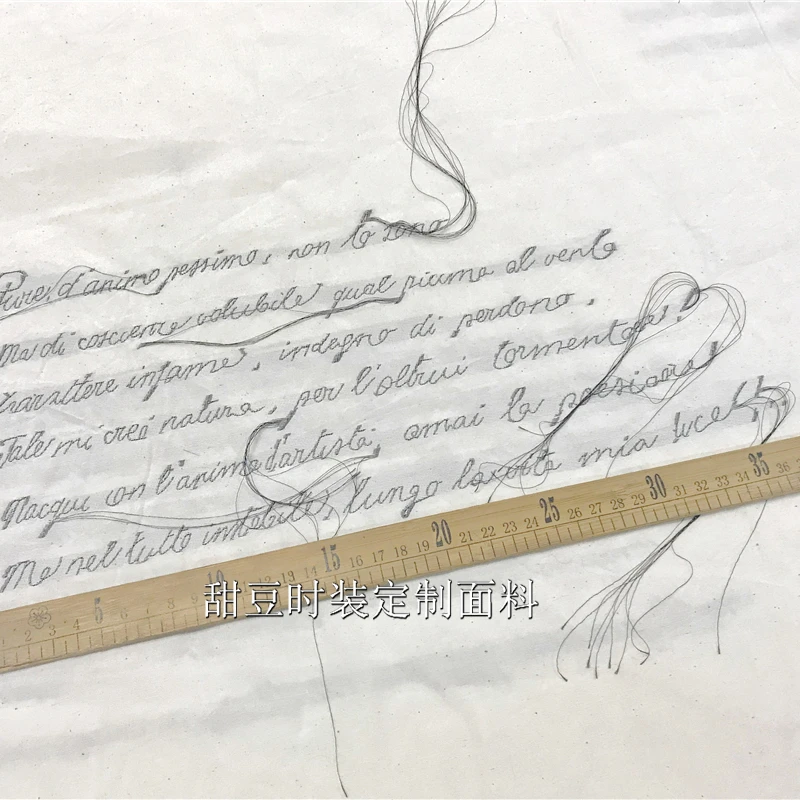 Pure, d'animo pessimo, non lo sono
Ma di coscienza volubile qual piuma al vento
Carattere infame, indegno di perdono.
Tale mi creò natura, per l'altrui tormento!
Nacqui con l'animo d'artista, amai la poesia
Ma nel tutto instabile, lungo mia
5 10 15 16 17 18 19 20 21 22 23 24 25 26 27 28 29 30 31 32 33 34 35 36
甜豆时装定制面料